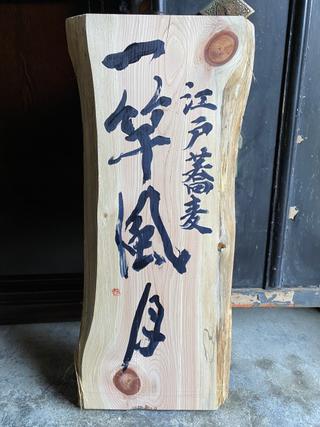 江戸蕎麦
一竿風月